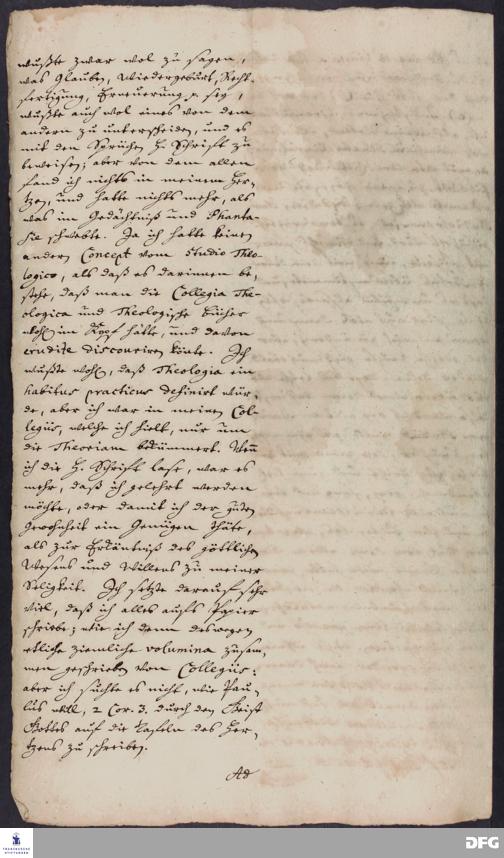 wußte zwar wol zu sagen,
was Glauben, Wiedergeburt, Recht-
fertigung, Erneuerung p. sey,
wußte auch wol eines von dem
andern zu unterscheiden, und es
mit den Sprüchen H. Schrifft zu
beweisen; aber von dem allen
fand ich nichts in meinem Her-
tzen, und hatte nichts mehr, als
was im Gedächtniß und Phanta-
sie schwebte. Ja ich hatte keinen
andern Concept vom Studio Theo-
logico, als daß es darinnen be-
stehe, daß man die Collegia The-
ologica und Theologische bücher
wohl im Kopf hätte, und davon
erudite discouriren könte. Ich
wußte wohl, daß Theologia ein
habitus practicus definirt wür-
de, aber ich war in meinen Col-
legiis, welche ich hielt, nur um
die Theoriam bekümmert. Wenn
ich die H. Schrifft lase, war es
mehr, daß ich gelehrt werden
möchte, oder damit ich der guten
Gewohnheit ein Genügen thäte,
als zur Erkäntniß des göttlichen
Wesens und Willens zu meiner
Seligkeit. Ich setzte darauf sehr
viel, daß ich alles aufs Papier
schriebe; wie ich denn deswegen
etliche ziemliche volumina zusam-
men geschrieben von Collegiis:
aber ich suchte es nicht, wie Pau-
lus will, 2 Cor. 3. durch den Geist
Gottes auf die Tafeln des Her-
tzens zu schreiben.
Ad
FRANCKESCHE
STIFTUNGEN
DFG